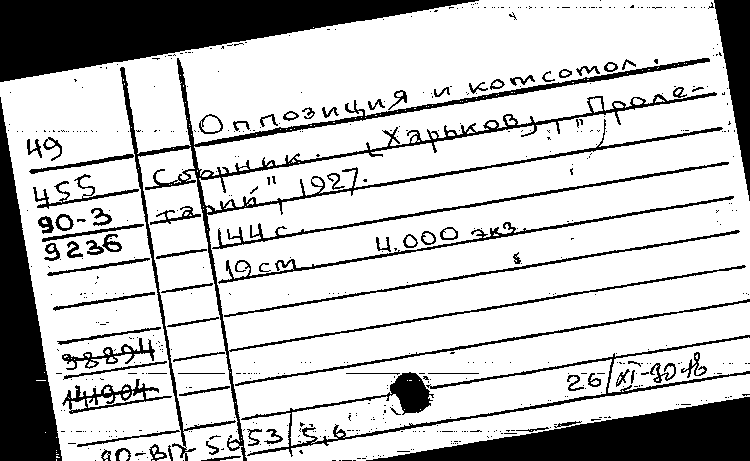 Оппозиция и комсомол.
49
Сборник. [Харьков], "Проле-
455
тарий", 1927.
90-3
9236
144 с.
19 см. 4.000 экз.
98894
141904
26/XI-90
90-ВП-5653/5,6